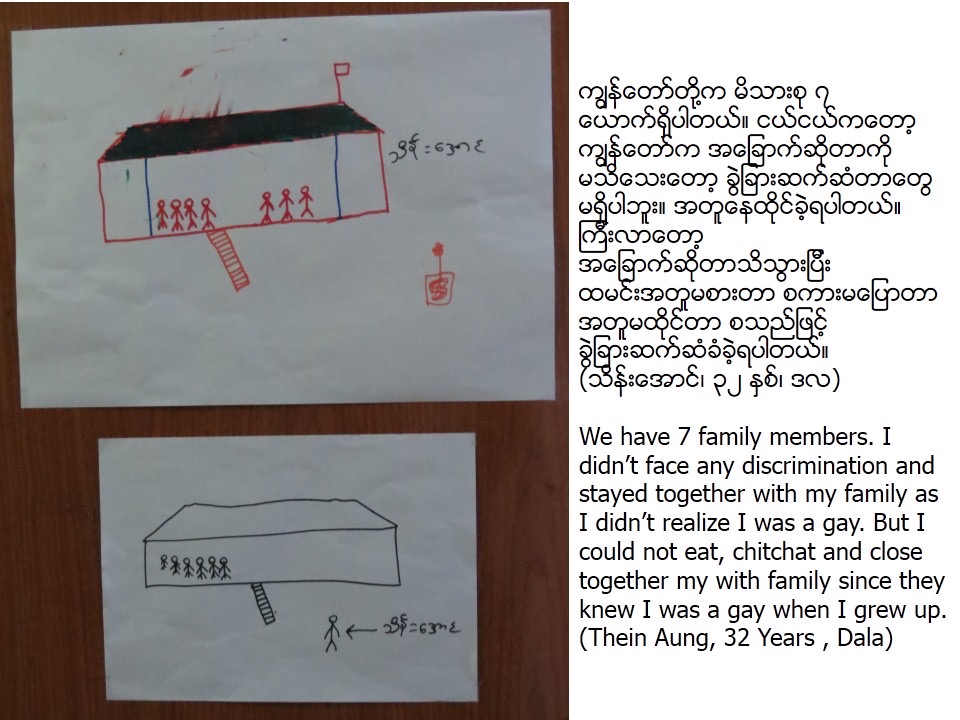 သိန်းအောင်
သိန်းအောင်
ကျွန်တော်တို့က မိသားစု ၇
ယောက်ရှိပါတယ်။ ငယ်ငယ်ကတော့
ကျွန်တော်က အခြောက်ဆိုတာကို
မသိသေးတော့ ခွဲခြားဆက်ဆံတာတွေ
မရှိပါဘူး။ အတူနေထိုင်ခဲ့ရပါတယ်။
ကြီးလာတော့
အခြောက်ဆိုတာသိသွားပြီး
ထမင်းအတူမစားတာ စကားမပြောတာ
အတူမထိုင်တာ စသည်ဖြင့်
ခွဲခြားဆက်ဆံခံခဲ့ရပါတယ်။
(သိန်းအောင်၊ ၃၂ နှစ်၊ ဒလ)
We have 7 family members. I
didn’t face any discrimination and
stayed together with my family as
I didn’t realize I was a gay. But I
could not eat, chitchat and close
together my with family since they
knew I was a gay when I grew up.
(Thein Aung, 32 Years , Dala)